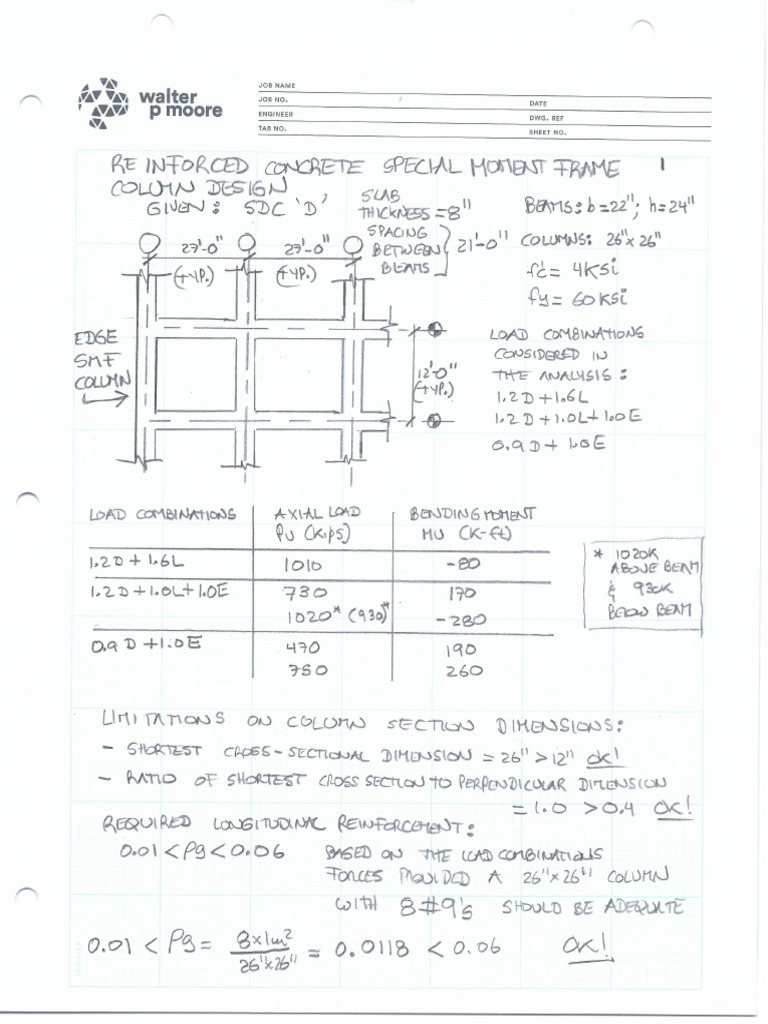 walter
p moore
JOB NAME
JOB NO.
DATE
ENGINEER
DWG. REF
TAB NO.
SHEET NO.
REINFORCED CONCRETE SPECIAL MOMENT FRAME 1
COLUMN DESIGN
GIVEN: SDC 'D',
SLAB
THICKNESS = 8"
BEAMS: b = 22"; h = 24"
SPACING
BETWEEN
BEAMS
21'-0"
COLUMNS: 26"x26"
f'c = 4KSi
fy = 60KSi
27'-0"
(TYP.)
27'-0"
(TYP.)
EDGE
SMF
COLUMN
12'-0"
(TYP.)
LOAD COMBINATIONS
CONSIDERED IN
THE ANALYSIS:
1.2D + 1.6L
1.2D + 1.0L + 1.0E
0.9D + 1.0E
LOAD COMBINATIONS AXIAL LOAD BENDING MOMENT
PU (Kips) MU (K-ft)
1.2D + 1.6L 1010 -80
1.2D + 1.0L + 1.0E 730 170
1020* (930)* -280
0.9D + 1.0E 470 190
750 260
* 1020K
ABOVE BEAM
& 930K
BELOW BEAM
LIMITATIONS ON COLUMN SECTION DIMENSIONS:
- SHORTEST CROSS-SECTIONAL DIMENSION = 26" > 12" OK!
- RATIO OF SHORTEST CROSS SECTION TO PERPENDICULAR DIMENSION
= 1.0 > 0.4 OK!
REQUIRED LONGITUDINAL REINFORCEMENT:
0.01 < ρg < 0.06 BASED ON THE LOAD COMBINATIONS
FORCES PROVIDED A 26"x26" COLUMN
WITH 8#9's SHOULD BE ADEQUATE
0.01 < ρg = 8x1in² / 26"x26" = 0.0118 < 0.06 OK!